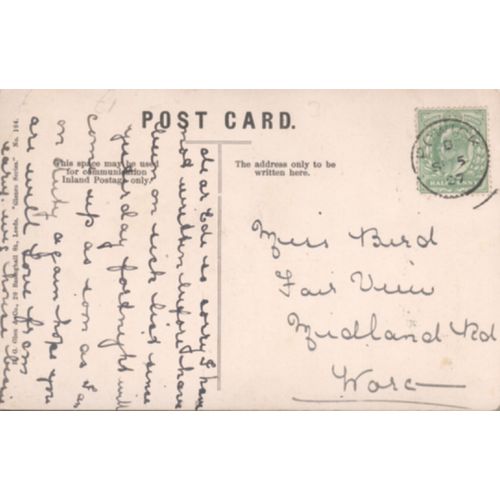 POST CARD.
This space may be used
for communication
Inland Postage only.
The address only to be
written here.
HALFPENNY
Miss Bird
Fair View
Midland Rd
Worc
dear Ede so sorry I have
not written before I have
been on sick list since
yesterday fortnight will
come up as soon as I am
on duty again hope you
are well you from
Co., 20 Basinghall St., Leeds. "Gloco Series." No. 104.